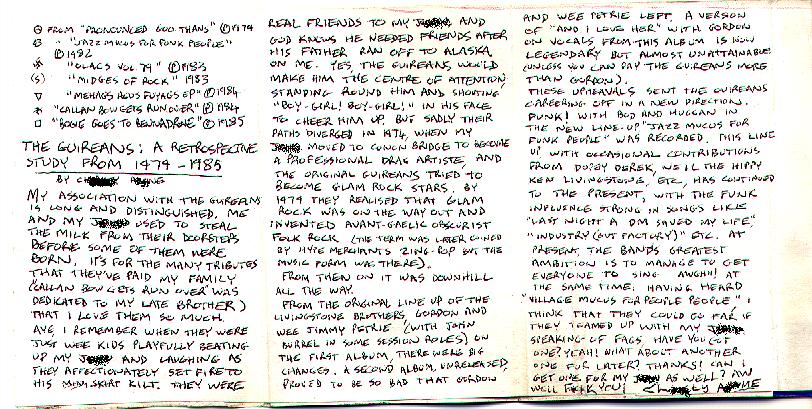 FROM "PRONOUNCED GOD. THANS" © 1974
" "JAZZ MUCUS FOR PUNK PEOPLE"
© 1982
" "OLACS VOL 79" © 1983
(S) " "MIDGES OF ROCK" 1983
▽ " "MEHAGS AGUS FUYAGS EP" © 1984
* "CALLAN BOW GETS RUN OVER" © 1984
□ "BOGIE GOES TO BENNADRONE" © 1985
THE GUIREANS: A RETROSPECTIVE
STUDY FROM 1474 - 1985
BY
MY ASSOCIATION WITH THE GUIREANS
IS LONG AND DISTINGUISHED. ME
AND MY USED TO STEAL
THE MILK FROM THEIR DOORSTEPS
BEFORE SOME OF THEM WERE
BORN. IT'S FOR THE MANY TRIBUTES
THAT THEY'VE PAID MY FAMILY
(CALLAN BOW GETS RUN OVER WAS
DEDICATED TO MY LATE BROTHER)
THAT I LOVE THEM SO MUCH.
AYE, I REMEMBER WHEN THEY WERE
JUST WEE KIDS PLAYFULLY BEATING
UP MY AND LAUGHING AS
THEY AFFECTIONATELY SET FIRE TO
HIS MINI-SKIRT KILT. THEY WERE
REAL FRIENDS TO MY AND
GOD KNOWS HE NEEDED FRIENDS AFTER
HIS FATHER RAN OFF TO ALASKA
ON ME. YES, THE GUIREANS WOULD
MAKE HIM THE CENTRE OF ATTENTION
STANDING ROUND HIM AND SHOUTING
"BOY-GIRL! BOY-GIRL!" IN HIS FACE
TO CHEER HIM UP. BUT SADLY THEIR
PATHS DIVERGED IN 1974, WHEN MY
MOVED TO CONON BRIDGE TO BECOME
A PROFESSIONAL DRAG ARTISTE, AND
THE ORIGINAL GUIREANS TRIED TO
BECOME GLAM ROCK STARS. BY
1979 THEY REALISED THAT GLAM
ROCK WAS ON THE WAY OUT AND
INVENTED AVANT-GAELIC OBSCURIST
FOLK ROCK (THE TERM WAS LATER COINED
BY HYPE MERCHANTS ZING-POP BUT THE
MUSIC FORM WAS THERE).
FROM THEN ON IT WAS DOWNHILL
ALL THE WAY.
FROM THE ORIGINAL LINE UP OF THE
LIVINGSTONE BROTHERS, GORDON AND
WEE JIMMY PETRIE (WITH JOHN
BURREL IN SOME SESSION ROLES) ON
THE FIRST ALBUM, THERE WERE BIG
CHANGES. A SECOND ALBUM, UNRELEASED,
PROVED TO BE SO BAD THAT GORDON
AND WEE PETRIE LEFT. A VERSION
OF "AND I LOVE HER" WITH GORDON
ON VOCALS FROM THIS ALBUM IS NOW
LEGENDARY BUT ALMOST UNATTAINABLE
(UNLESS YOU CAN PAY THE GUIREANS MORE
THAN GORDON).
THESE UPHEAVALS SENT THE GUIREANS
CAREERING OFF IN A NEW DIRECTION.
PUNK! WITH BOD AND HUGGAN IN
THE NEW LINE-UP "JAZZ MUCUS FOR
PUNK PEOPLE" WAS RECORDED. THIS LINE
UP WITH OCCASIONAL CONTRIBUTIONS
FROM DOPEY DEREK, NEIL THE HIPPY
KEN LIVINGSTONE, ETC, HAS CONTINUED
TO THE PRESENT, WITH THE FUNK
INFLUENCE STRONG IN SONGS LIKE
"LAST NIGHT A DOM SAVED MY LIFE,"
"INDUSTRY (OUT FACTORY)" ETC. AT
PRESENT THE BAND'S GREATEST
AMBITION IS TO MANAGE TO GET
EVERYONE TO SING AWGH!! AT
THE SAME TIME. HAVING HEARD
"VILLAGE MUCUS FOR PEOPLE PEOPLE" I
THINK THAT THEY COULD GO FAR IF
THEY TEAMED UP WITH MY
SPEAKING OF FAGS, HAVE YOU GOT
ONE? YEAH! WHAT ABOUT ANOTHER
ONE FOR LATER? THANKS! CAN I
GET ONE FOR MY AS WELL? AW
WELL YOU!